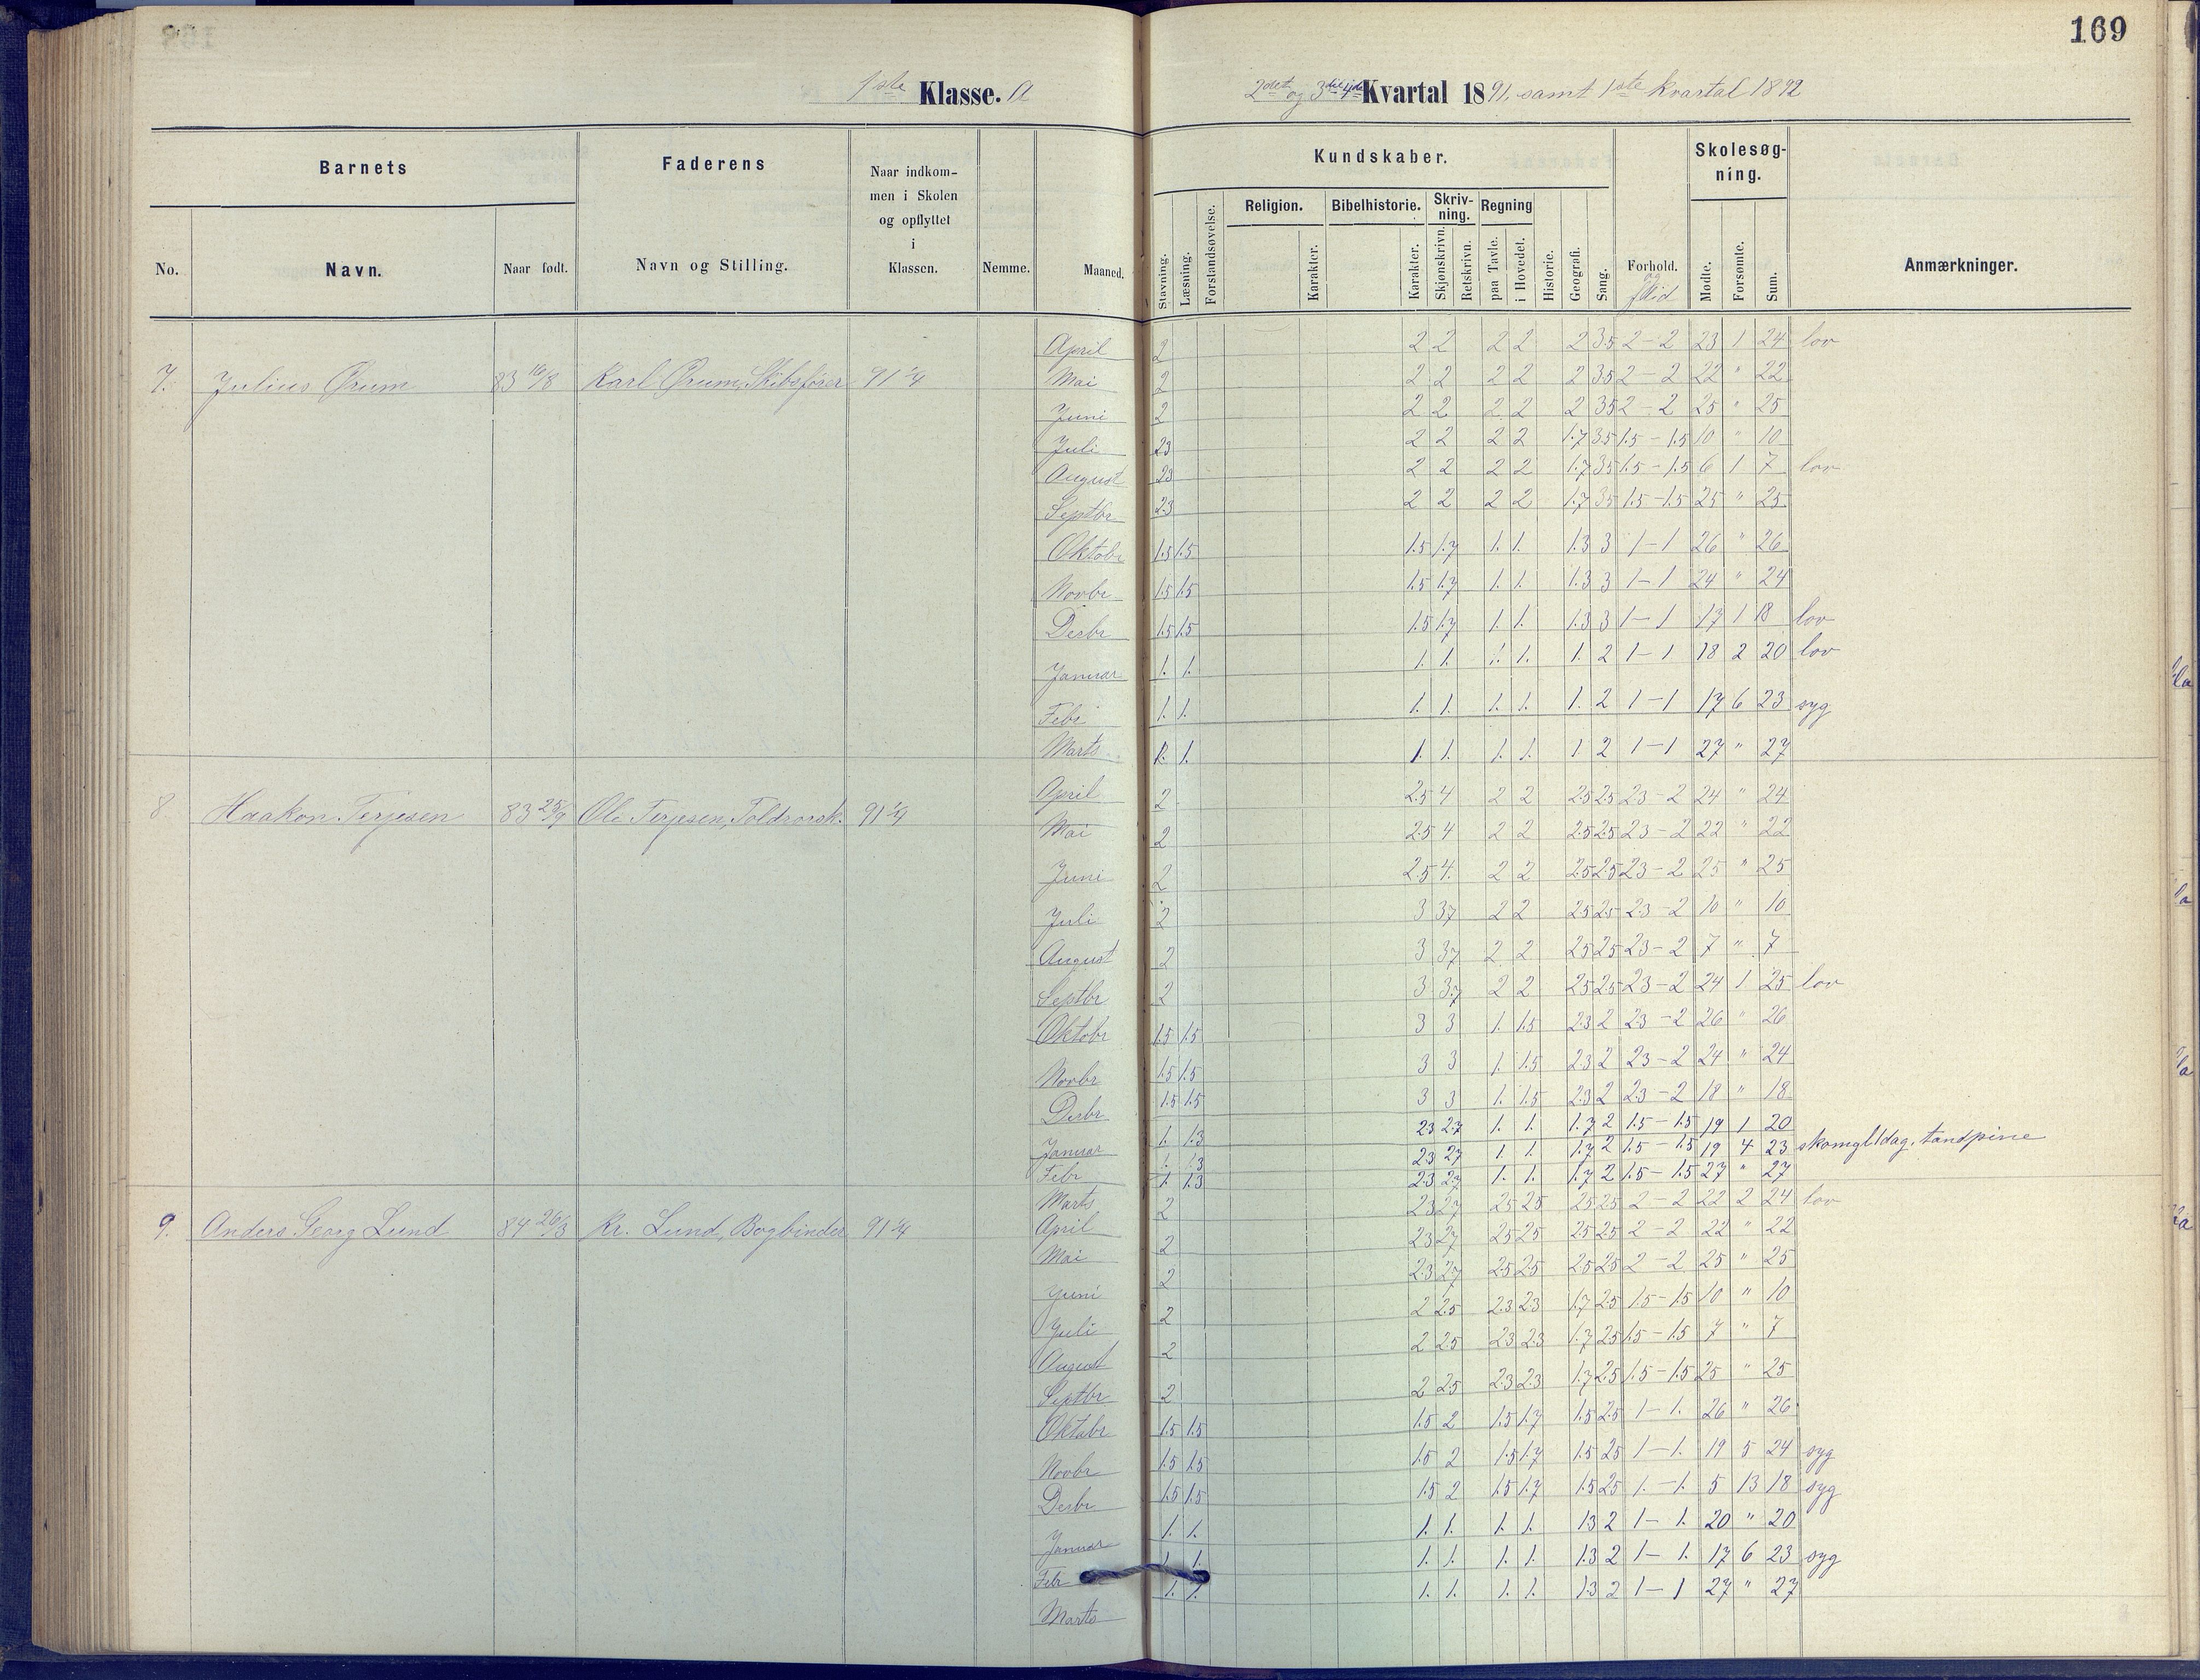 169
1ste Klasse. A
2det og 3die 4de Kvartal 1891, samt 1ste kvartal 1892
Barnets Faderens Naar indkommen i Skolen og opflyttet i Klassen. Nemme. Maaned. Kundskaber. Forhold. og flid Skolesøgning. Anmærkninger.
No. Navn. Naar født. Navn og Stilling. Stavning. Læsning. Forstandsøvelse. Religion. Karakter. Bibelhistorie. Karakter. Skrivning. Skjønskrivn. Retskrivn. Regning paa Tavle. i Hovedet. Historie. Geografi. Sang. Mødte. Forsømte. Sum.
April 2 2 2 2 2 2 3.5 2-2 23 1 24 lov
7. Julius Ørum 83 16/8 Karl Ørum, Skibsfører 91 1/4 Mai 2 2 2 2 2 2 3.5 2-2 22 " 22
Juni 2 2 2 2 2 2 3.5 2-2 25 " 25
Juli 2.3 2 2 2 2 1.7 3.5 1.5-1.5 10 " 10
August 2.3 2 2 2 2 1.7 3.5 1.5-1.5 6 1 7 lov
Septbr 2.3 2 2 2 2 1.7 3.5 1.5-1.5 25 " 25
Oktobr 1.5 1.5 1.5 1.7 1. 1. 1.3 3 1-1 26 " 26
Novbr 1.5 1.5 1.5 1.7 1. 1. 1.3 3 1-1 24 " 24
Desbr 1.5 1.5 1.5 1.7 1. 1. 1.3 3 1-1 17 1 18 lov
Januar 1. 1. 1. 1. 1. 1. 1. 2 1-1 18 2 20 lov
Febr 1. 1. 1. 1. 1. 1. 1. 2 1-1 17 6 23 syg
Marts 1. 1. 1. 1. 1. 1. 1 2 1-1 27 " 27
April 2 2.5 4 2 2 2.5 2.5 2.3-2 24 " 24
8. Haakon Terjesen 83 25/9 Ole Terjesen, Toldrorsk. 91 1/4 Mai 2 2.5 4 2 2 2.5 2.5 2.3-2 22 " 22
Juni 2 2.5 4. 2 2 2.5 2.5 2.3-2 25 " 25
Juli 2 3 3.7 2 2 2.5 2.5 2.3-2 10 " 10
August 2 3 3.7 2 2 2.5 2.5 2.3-2 7 " 7
Septbr 2 3 3.7 2 2 2.5 2.5 2.3-2 24 1 25 lov
Oktobr 1.5 1.5 3 3 1. 1.5 2.3 2 2.3-2 26 " 26
Novbr 1.5 1.5 3 3 1. 1.5 2.3 2 2.3-2 24 " 24
Desbr 1.5 1.5 3 3 1. 1.5 2.3 2 2.3-2 18 " 18
Januar 1. 1.3 2.3 2.7 1. 1. 1.7 2 1.5-1.5 19 1 20
Febr 1. 1.3 2.3 2.7 1 1. 1.7 2 1.5-1.5 19 4 23 skomgl 1 dag, tandpine
Marts 1. 1.3 2.3 2.7 1. 1. 1.7 2 1.5-1.5 27 " 27
April 2 2.3 2.7 2.5 2.5 2.5 2.5 2-2 22 2 24 lov
9. Anders Georg Lund 84 26/3 Kr. Lund, Bogbinder 91 1/4 Mai 2 2.3 2.7 2.5 2.5 2.5 2.5 2-2 22 " 22
Juni 2 2.3 2.7 2.5 2.5 2.5 2.5 2-2 25 " 25
Juli 2 2 2.5 2.3 2.3 1.7 2.5 1.5-1.5 10 " 10
August 2 2 2.5 2.3 2.3 1.7 2.5 1.5-1.5 7 " 7
Septbr 2 2 2.5 2.3 2.3 1.7 2.5 1.5-1.5 25 " 25
Oktobr 1.5 1.5 1.5 2 1.5 1.7 1.5 2.5 1-1. 26 " 26
Novbr 1.5 1.5 1.5 2 1.5 1.7 1.5 2.5 1-1. 19 5 24 syg
Desbr 1.5 1.5 1.5 2 1.5 1.7 1.5 2.5 1.-1. 5 13 18 syg
Januar 1. 1. 1. 1. 1. 1. 1.3 2 1-1. 20 " 20
Febr 1. 1. 1. 1. 1. 1. 1.3 2 1-1. 17 6 23 syg
Marts 1. 1. 1. 1. 1. 1. 1.3 2 1-1 27 " 27